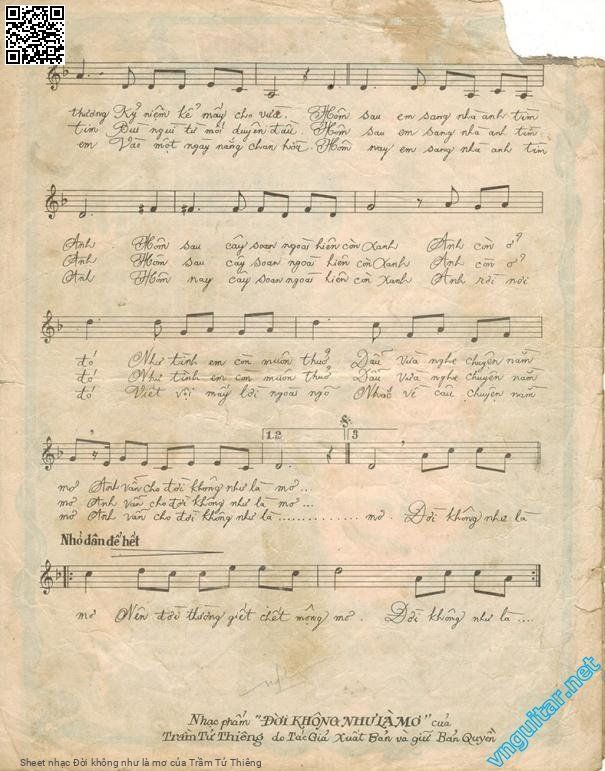 thương Kỷ niệm kể mấy cho vừa. Hôm sau em sang nhà anh tìm
tim Bùi ngùi từ mối duyên đầu. Hôm sau em sang nhà anh tìm
em Vào một ngày nắng chan hòa Hôm nay em sang nhà anh tìm
Anh. Hôm sau cây soan ngoài hiên còn xanh Anh còn ở?
Anh Hôm sau cây soan ngoài hiên còn xanh Anh còn ở?
Anh Hôm nay cây soan ngoài hiên còn xanh Anh rời nơi
đó Như tình em còn muôn thuở Dẫu vừa nghe chuyện năm
đó Như tình em còn muôn thuở Dẫu vừa nghe chuyện năm
đó Viết vội mấy lời ngoài ngõ Nhắc về câu chuyện năm
1.2. 3
mơ Anh vẫn cho đời không như là mơ...
mơ Anh vẫn cho đời không như là mơ...
mơ Anh vẫn cho đời không như là ............ mơ. Đời không như là
Nhỏ dần để hết
mơ Nên đời thường giết chết mộng mơ. Đời không như là ....
Nhạc phẩm "ĐỜI KHÔNG NHƯ LÀ MƠ" của
Trầm Tử Thiêng do Tác Giả Xuất Bản và giữ Bản Quyền
vnguitar.net
Sheet nhạc Đời không như là mơ của Trầm Tử Thiêng